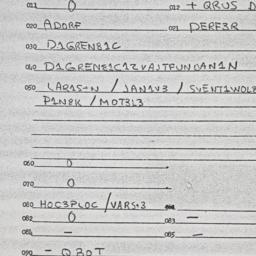 011 0 012 + QRUS D
020 ADORF 021 DERF3R
030 D1GREN81C
040 D1GREN81C12VAJTFUNDAN1N
050 LAR15-N / JAN1V3 / SVENT1WOLF
P1N8K / MOT3L3
060 0
070 0
080 HOC3PLOC / VARS+3
082 0 083 —
084 — 085 —
090 - QBOT